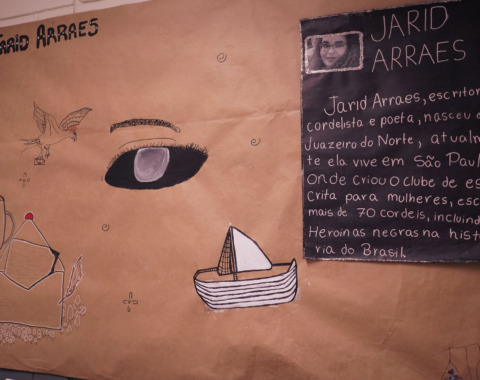 JARID ARRAES
JARID
ARRAES
Jarid Arraes, escritor
cordelista e poeta, nasceu
Juazeiro do Norte, atualm
te ela vive em São Paul
Onde criou o clube de es
crita para mulheres, esc
mais de 70 cordeis, incluind
Heroinas negras na hist
ria do Brasil.